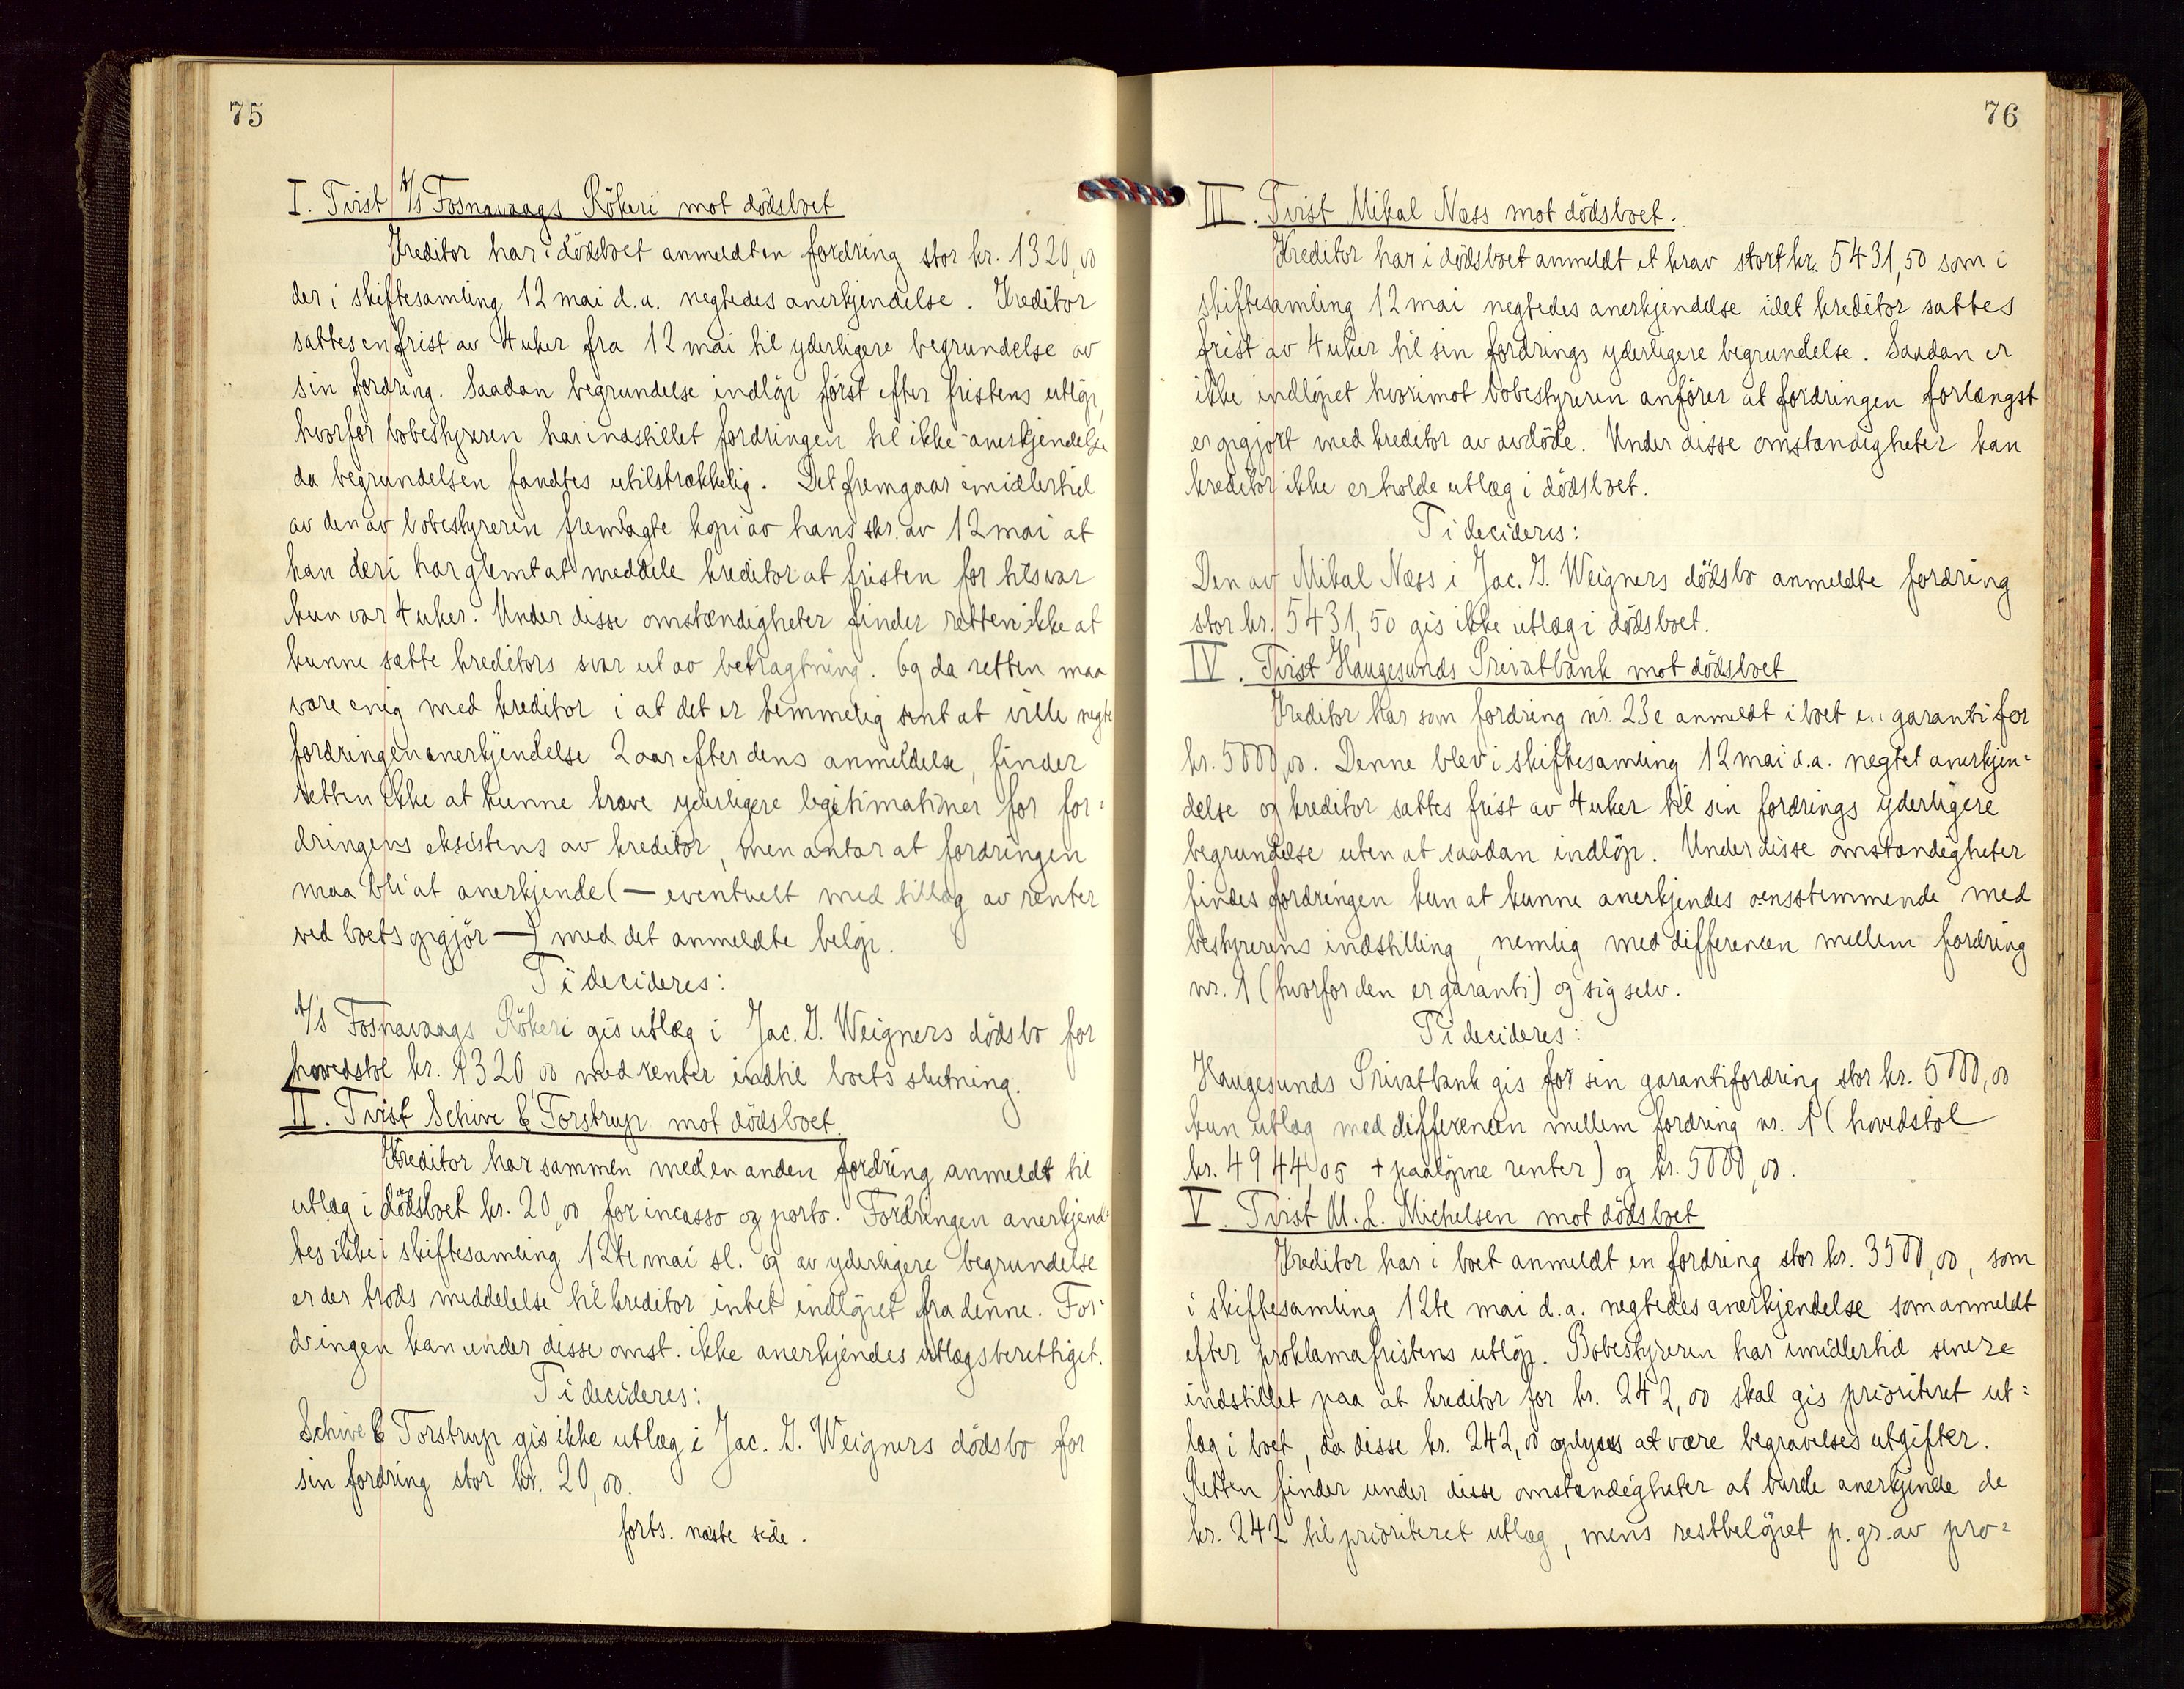 75
I. Tvist A/s Fosnavaags Rökeri mot dödsboet
Kreditor har i dödsboet anmeldt en fordring stor kr. 1320,00
der i skiftesamling 12 mai d.a. negtedes anerkjendelse. Kreditor
sattes en frist av 4 uker fra 12 mai til yderligere begrundelse av
sin fordring. Saadan begrundelse indløp först efter fristens utløp,
hvorfor bobestyreren har indstillet fordringen til ikke-anerkjendelse
da begrundelsen fandtes utilstrækkelig. Det fremgaar imidlertid
av den av bobestyreren fremlagte kopi av hans skr. av 12 mai at
han deri har glemt at meddele kreditor at fristen for tilsvar
kun var 4 uker. Under disse omstændigheter finder retten ikke at
kunne sætte kreditors svar ut av betragtning. Og da retten maa
være enig med kreditor i at det er temmelig sent at ville negte
fordringen anerkjendelse 2 aar efter dens anmeldelse, finder
retten ikke at kunne kræve yderligere legitimationer for for=
dringens eksistens av kreditor, men antar at fordringen
maa bli at anerkjende (— eventuelt med tillæg av renter
ved boets opgjör —) med det anmeldte beløp.
Ti decideres:
A/s Fosnavaags Rökeri gis utlæg i Jac. G. Weigners dödsbo for
hovedstol kr. 1320,00 med renter indtil boets slutning.
II. Tvist Schive & Torstrup mot dödsboet.
Kreditor har sammen med en anden fordring anmeldt til
utlæg i dödsboet kr. 20,00 for incasso og porto. Fordringen anerkjend=
tes ikke i skiftesamling 12te mai sl. og av yderligere begrundelse
er der trods meddelelse til kreditor intet indløpet fra denne. For=
dringen kan under disse omst. ikke anerkjendes utlægsberettiget.
Ti decideres:
Schive & Torstrup gis ikke utlæg i Jac. G. Weigners dödsbo for
sin fordring stor kr. 20,00.
forts. næste side.
76
III. Tvist Mikal Næss mot dödsboet.
Kreditor har i dödsboet anmeldt et krav stort kr. 5431,50 som i
skiftesamling 12 mai negtedes anerkjendelse idet kreditor sattes
frist av 4 uker til sin fordrings yderligere begrundelse. Saadan er
ikke indløpet hvorimot bobestyreren anfører at fordringen forlængst
er opgjort med kreditor av avdöde. Under disse omstændigheter kan
kreditor ikke erholde utlæg i dödsboet.
Ti decideres:
Den av Mikal Næss i Jac. G. Weigners dödsbo anmeldte fordring
stor kr. 5431,50 gis ikke utlæg i dödsboet.
IV. Tvist Haugesunds Privatbank mot dödsboet
Kreditor har som fordring nr. 23e anmeldt i boet en garanti for
kr. 5000,00. Denne blev i skiftesamling 12 mai d.a. negtet anerkjen=
delse og kreditor sattes frist av 4 uker til sin fordrings yderligere
begrundelse uten at saadan indløp. Under disse omstændigheter
findes fordringen kun at kunne anerkjendes overensstemmende med
bestyrerens indstilling, nemlig med differencen mellem fordring
nr. 1 (hvorfor den er garanti) og sig selv.
Ti decideres:
Haugesunds Privatbank gis for sin garantifordring stor kr. 5000,00
kun utlæg med differencen mellem fordring nr. 1 (hovedstol
kr. 4944,05 + paaløpne renter) og kr. 5000,00.
V. Tvist M. L. Michelsen mot dödsboet
Kreditor har i boet anmeldt en fordring stor kr. 3500,00, som
i skiftesamling 12te mai d.a. negtedes anerkjendelse som anmeldt
efter proklamafristens utløp. Bobestyreren har imidlertid senere
indstillet paa at kreditor for kr. 242,00 skal gis prioritert ut=
læg i boet, da disse kr. 242,00 oplyses at være begravelses utgifter.
Retten finder under disse omstændigheter at burde anerkjende de
kr. 242 til prioriteret utlæg, mens restbeløpet p. gr. av pro=